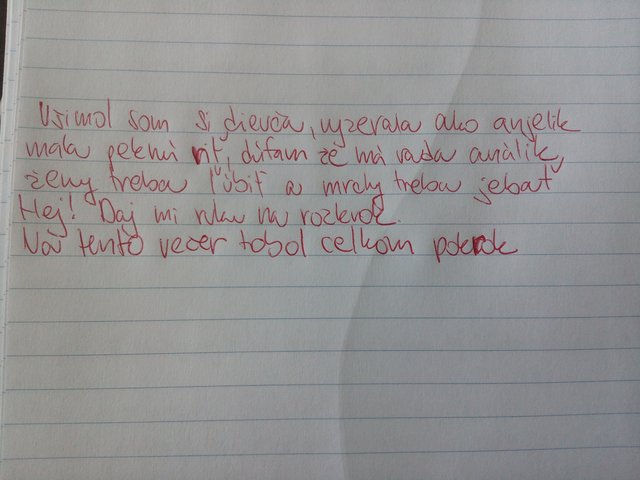 Všimol som si dievča, vyzerala ako anjelik
mala peknú riť, dúfam že má rada análik,
ženy treba ľúbiť a mrchy treba jebať
Hej! Daj mi ruku na rozkrok.
No tento večer to bol celkom pokrok